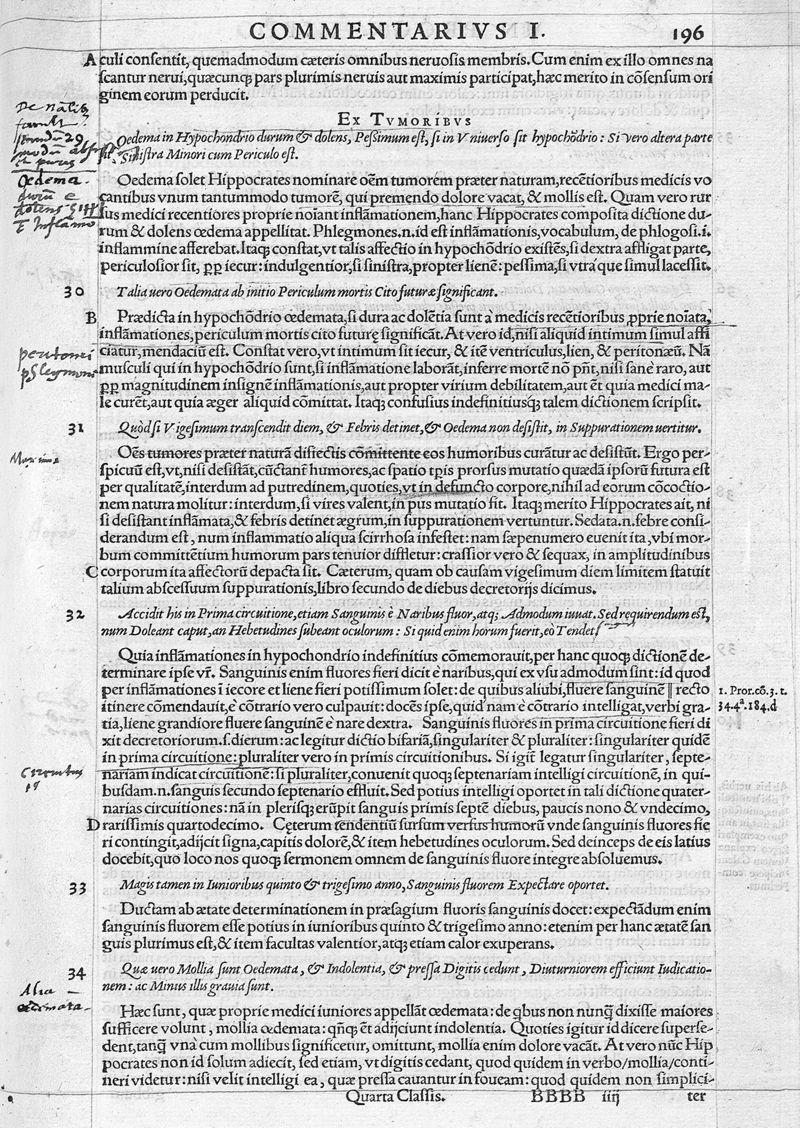 COMMENTARIVS I. 196
A culi consentit, quemadmodum cæteris omnibus neruosis membris. Cum enim ex illo omnes na
scantur nerui, quæcunq; pars plurimis neruis aut maximis participat, hæc merito in cõsensum ori
ginem eorum perducit.
EX TVMORIBVS
29 Oedema in Hypochondrio durum & dolens, Pessimum est, si in Vniuerso sit hypochõdrio: Si vero altera parte
sit, Sinistra Minori cum Periculo est.
Oedema
Oedema solet Hippocrates nominare oẽm tumorem præter naturam, recẽtioribus medicis vo
cantibus vnum tantummodo tumorẽ, qui premendo dolore vacat, & mollis est. Quam vero rur
sus medici recentiores proprie noĩant inflãmationem, hanc Hippocrates composita dictione du-
rum & dolens œdema appellitat. Phlegmones.n.id est inflãmationis, vocabulum, de phlogosi.i.
inflammine afferebat. Itaq; constat, vt talis affectio in hypochõdrio existẽs, si dextra affligat parte,
periculosior sit, ꝓꝑ iecur: indulgentior, si sinistra, propter lienẽ: pessima, si vtráque simul lacessit.
30 Talia uero Oedemata ab initio Periculum mortis Cito futuræ significant.
B Prædicta in hypochõdrio œdemata, si dura ac dolẽtia sunt à medicis recẽtioribus, ꝓprie noĩata,
inflãmationes, periculum mortis cito futurę significãt. At vero id, nisi aliquid intimum simul affi
ciatur, mendaciũ est. Constat vero, vt intimum sit iecur, & itẽ ventriculus, lien, & peritonæũ. Nã
musculi qui in hypochõdrio sunt, si inflãmatione laborãt, inferre mortẽ nõ pñt, nisi sanè raro, aut
ꝓꝑ magnitudinem insignẽ inflãmationis, aut propter virium debilitatem, aut ẽt quia medici ma-
le curẽt, aut quia æger aliquid cõmittat. Itaq; confusius indefinitiusq; talem dictionem scripsit.
31 Quòd si Vigesimum transcendit diem, & Febris detinet, & Oedema non desistit, in Suppurationem uertitur.
Oẽs tumores præter naturã disiectis cõmittente eos humoribus curãtur ac desistũt. Ergo per-
spicuũ est, vt, nisi desistãt, cũctant humores, ac spatio tpis prorsus mutatio quædã ipsorũ futura est
per qualitatẽ, interdum ad putredinem, quoties, vt in defuncto corpore, nihil ad eorum cõcoctio-
nem natura molitur: interdum, si vires valent, in pus mutatio fit. Itaq; merito Hippocrates ait, ni
si desistant inflãmata, & febris detinet ægrum, in suppurationem vertuntur. Sedata.n.febre consi-
derandum est, num inflammatio aliqua scirrhosa infestet: nam sæpenumero euenit ita, vbi mor-
bum committẽtium humorum pars tenuior diffletur: crassior vero & sequax, in amplitudinibus
C corporum ita affectorũ depacta sit. Cæterum, quam ob causam vigesimum diem limitem statuit
talium abscessuum suppurationis, libro secundo de diebus decretorijs dicimus.
32 Accidit his in Prima circuitione, etiam Sanguinis è Naribus fluor, atq; Admodum iuuat. Sed requirendum est,
num Doleant caput, an Hebetudines subeant oculorum: Si quid enim horum fuerit, eò Tendet
Quia inflãmationes in hypochondrio indefinitius cõmemorauit, per hanc quoq; dictionẽ de-
terminare ipse vr̃. Sanguinis enim fluores fieri dicit è naribus, qui ex vsu admodum sint: id quod
per inflãmationes i iecore et liene fieri potissimum solet: de quibus aliubi, fluere sanguinẽ ‖ recto
itinere cõmendauit, è cõtrario vero culpauit: docẽs ipse, quid nam è cõtrario intelligat, verbi gra-
tia, liene grandiore fluere sanguinẽ è nare dextra. Sanguinis fluores in prima circuitione fieri di
xit decretoriorum.s.dierum: ac legitur dictio bifariã, singulariter & pluraliter: singulariter quidẽ
in prima circuitione: pluraliter vero in primis circuitionibus. Si igit̃ legatur singulariter, septe-
nariam indicat circuitionẽ: si pluraliter, conuenit quoq; septenariam intelligi circuitionẽ, in qui-
busdam.n.sanguis secundo septenario effluit. Sed potius intelligi oportet in tali dictione quater-
narias circuitiones: nã in plerisq; erũpit sanguis primis septẽ diebus, paucis nono & vndecimo,
D rarissimis quartodecimo. Cęterum tendentiũ sursum versus humorũ vnde sanguinis fluores fie
ri contingit, adijcit signa, capitis dolorẽ, & item hebetudines oculorum. Sed deinceps de eis latius
docebit, quo loco nos quoq; sermonem omnem de sanguinis fluore integre absoluemus.
1. Pror.cõ.3.t.
34.4ª.184.d
33 Magis tamen in Iunioribus quinto & trigesimo anno, Sanguinis fluorem Expectare oportet.
Ductam ab ætate determinationem in præsagium fluoris sanguinis docet: expectãdum enim
sanguinis fluorem esse potius in iunioribus quinto & trigesimo anno: etenim per hanc ætatẽ san
guis plurimus est, & item facultas valentior, atq; etiam calor exuperans.
34 Quæ uero Mollia sunt Oedemata, & Indolentia, & pressa Digitis cedunt, Diuturniorem efficiunt Iudicatio-
nem: ac Minus illis grauia sunt.
Hæc sunt, quæ proprie medici iuniores appellãt œdemata: de ꝗbus non nunq̃ dixisse maiores
sufficere volunt, mollia œdemata: qñq; ẽt adijciunt indolentia. Quoties igitur id dicere superse-
dent, tanq̃ vnà cum mollibus significetur, omittunt, mollia enim dolore vacãt. At vero nũc Hip
pocrates non id solum adiecit, sed etiam, vt digitis cedant, quod quidem in verbo/mollia/conti-
neri videtur: nisi velit intelligi ea, quæ pressa cauantur in foueam: quod quidem non simplici-
Quarta Classis. BBBB iiij ter